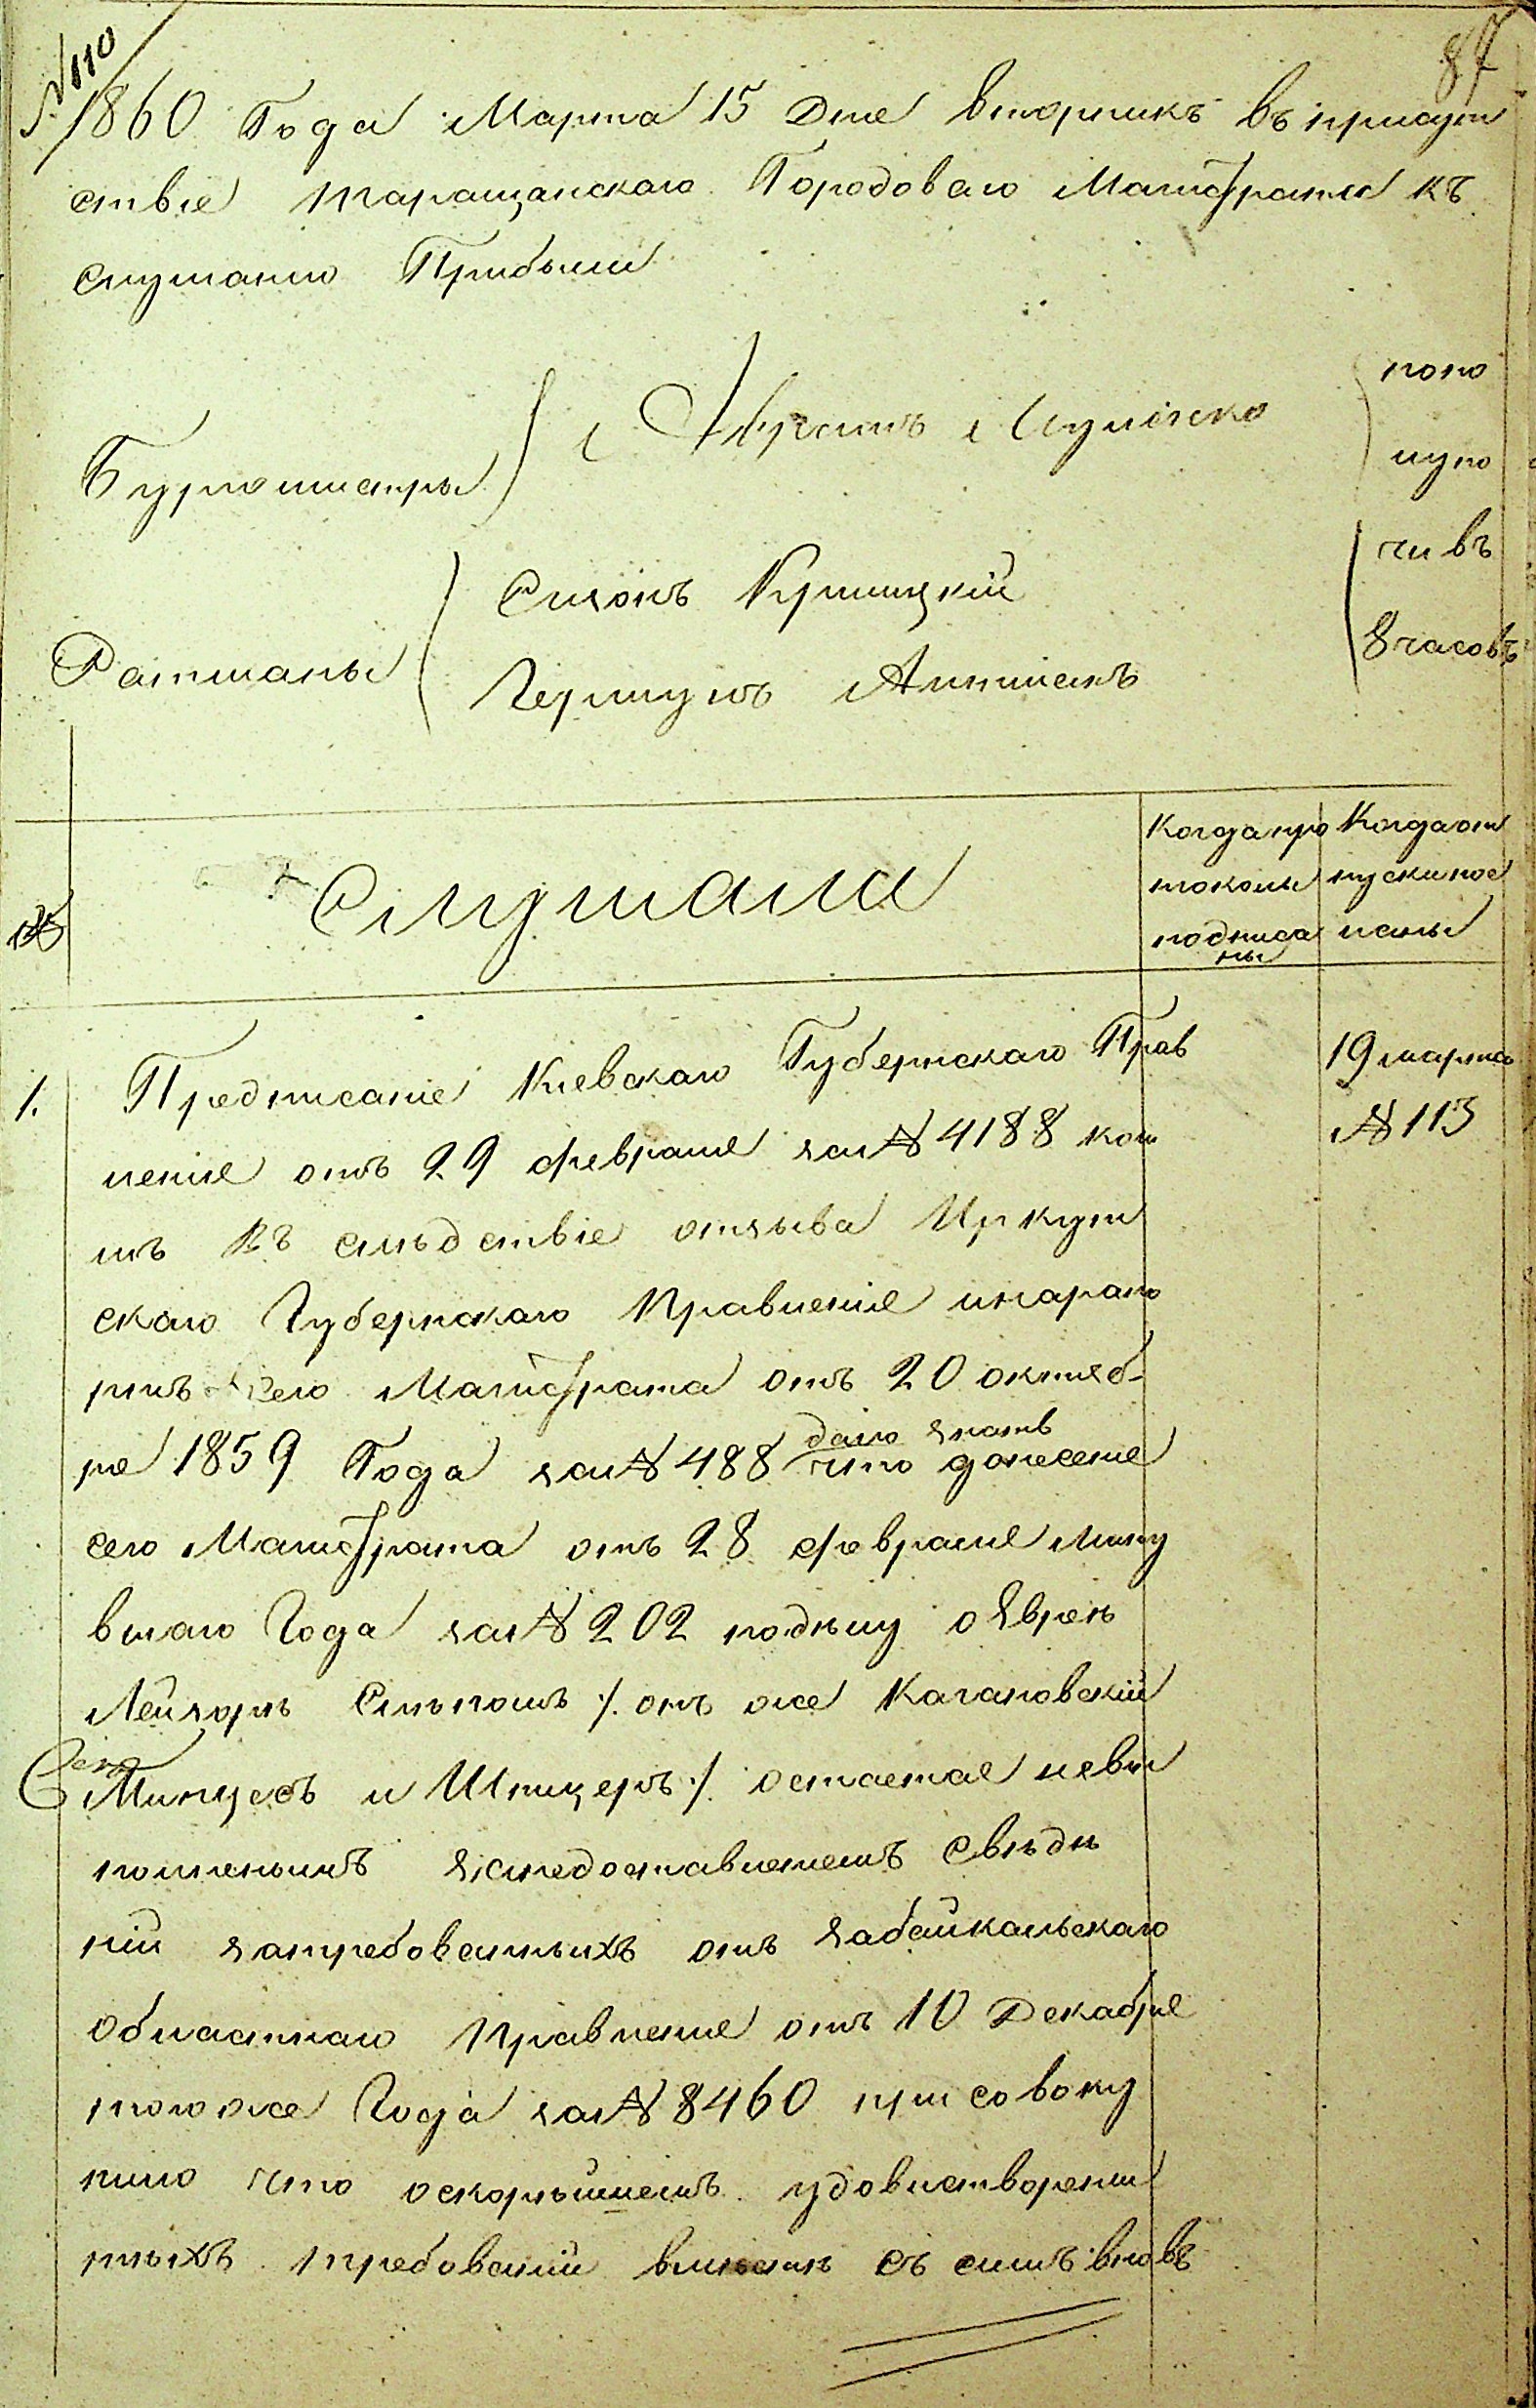 № 110
87
1860 Года Марта 15 Дня вторникъ въ присут
ствіе Таращанскаго Городоваго Магистрата къ
слушанію Прибыли
Бургомистры
Ратманы
Симонъ Криницкій
попо
луно
чи въ
8 часовъ
№
Слушали
Когда про
токолы
подписа
ны
Когда от
пуски пос
ланы
1. Предписаніе Кіевскаго Губернскаго Прав
ленія отъ 29 февраля за № 4188 коим
въ слѣдствіе отзыва Иркут
скаго Губернскаго Правленія
сего Магистрата отъ 20 октяб-
ря 1859 Года за № 488 дано знать что донесеніе
сего Магистрата отъ 28 февраля мину
вшаго Года за № 202 о Евреѣ
Лейзорѣ онъ же Кагановскій
Минцесъ и Шпицеръ ./. остается невы
полненнымъ занедоставленіемъ свѣдѣ
ній затребованныхъ отъ Забайкальскаго
Областнаго Правленія отъ 10 Декабря
того же Года за № 8460 присовоку
пило что оскорѣйшемъ удовлетвореніи
требованій съ симъ вновь
19 марта
№ 113